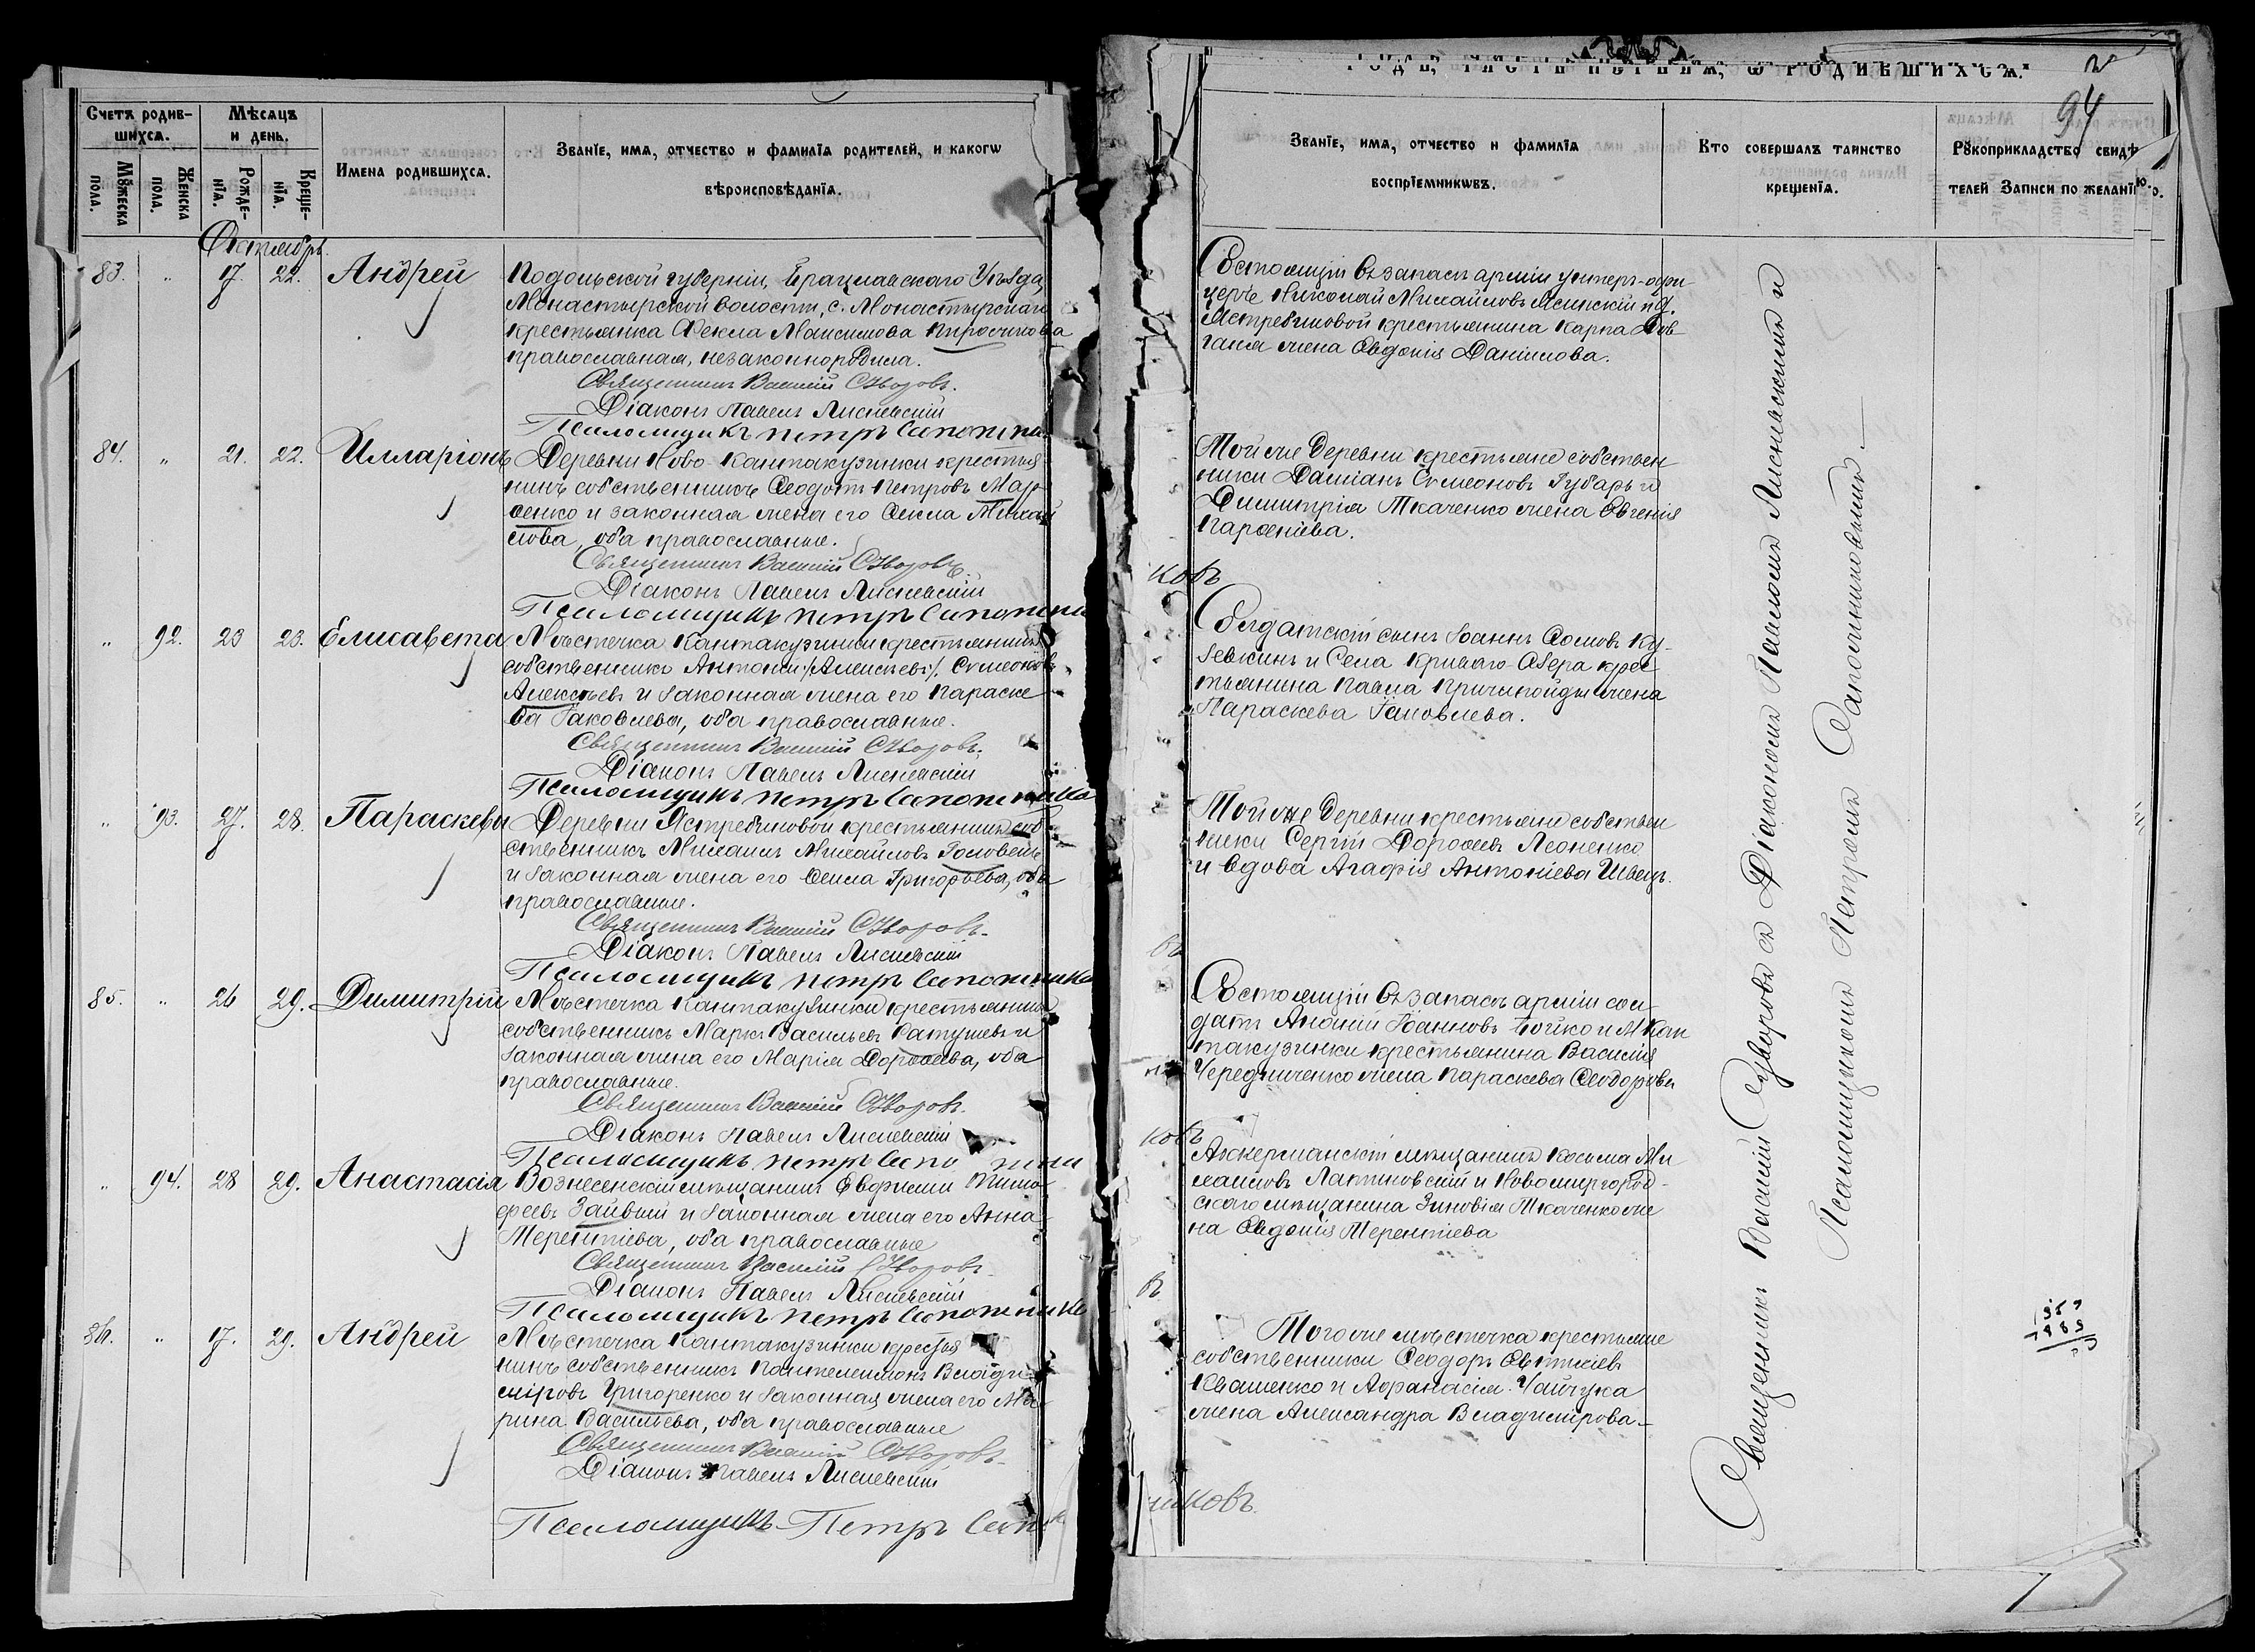 Счетъ родив-
шихся.
Мѣсяцъ
и день.
Мужеска
пола.
Женска
пола.
Рожде-
нія.
Креще-
нія.
Имена родившихся.
Званіе, имя, отчество и фамилія родителей, и какогѡ
вѣроисповѣданія.
Октябрь.
83. " 17. 22. Андрей
Подольской губерніи, Брацлавскаго Уѣзда,
Монастырской волости, с. Монастырскаго
крестьянка Ѳекла Максимова
православная, незаконнорожд.
Священникъ Василій Суворовъ.
Діаконъ Павелъ Лисневскій
Псаломщикъ Петръ Сапожник
84. " 21. 22. Илларіонъ
Деревни Ново-Кантакузинки крестья
нинъ собственникъ Ѳеодотъ Петровъ Мар-
ѳенко и законная жена его Ѳекла Михай
лова, оба православные.
Священникъ Василій Суворовъ.
Діаконъ Павелъ Лисневскій
Псаломщикъ Петръ Сапожник
" 92. 23 23. Елисавета
Мѣстечка Кантакузинки крестьянинъ
собственникъ Антоній /Алексѣевъ/ Симеоновъ
Алексѣевъ и законная жена его Параске
ва Іаковлева, оба православные.
Священникъ Василій Суворовъ.
Діаконъ Павелъ Лисневскій
Псаломщикъ Петръ Сапожника
" 93. 27. 28. Параскева
Деревни Ястребиновой крестьянинъ соб-
ственникъ Михаилъ Михайловъ Головень
и законная жена его Ѳекла Григорьева, оба
православные.
Священникъ Василій Суворовъ.
Діаконъ Павелъ Лисневскій
Псаломщикъ Петръ Сапожнико
85. " 26 29. Димитрій
Мѣстечка Кантакузинки крестьянинъ
собственникъ Маркъ Васильевъ Ратушевъ и
законная жена его Марія Дороѳеева, оба
православные.
Священникъ Василій Суворовъ.
Діаконъ Павелъ Лисневскій
Псаломщикъ Петръ Сапо жни
" 94. 28 29. Анастасія
Вознесенскій мѣщанинъ Евфимій Тимо-
феевъ и законная жена его Анна
Терентіева, оба православные
Священникъ Василій Суворовъ.
Діаконъ Павелъ Лисневскій
Псаломщикъ Петръ Сапожнико
86. " 17. 29. Андрей
Мѣстечка Кантакузинки крестья
нинъ собственникъ Пантелеимонъ Влади-
міровъ Григоренко и законная жена его Ма-
рина Васильева, оба православные
Священникъ Василій Суворовъ.
Діаконъ Павелъ Лисневскій
Псаломщикъ Петръ Сапож
годъ, часть первая, ѡ родившихся.
94
Званіе, имя, отчество и фамилія
воспріемникѡвъ.
Кто совершалъ таинство
крещенія.
Рукоприкладство свидѣ
телей записи по желанію.
Состоящій въ запасѣ арміи унтеръ-офи-
церъ Николай Михайловъ и д.
Ястребиновой крестьянина Карпа Дов-
ганя жена Евдокія Даніилова.
Той же деревни крестьяне собствен
ники Даміанъ Симеоновъ Губарь и
Димитрія Ткаченко жена Евгенія
Парѳеніева.
ковъ
Солдатскій сынъ Іоаннъ Ѳомовъ Ку-
левкинъ и Села Криваго Озера крес
тьянина Павла жена
Параскева Іаковлева.
Той же деревни крестьяне собствен
ники Сергій Дороѳеевъ Леоненко
и вдова Агафія Антоніева Швецъ.
въ
Состоящій въ запасѣ арміи сол-
датъ Іоанновъ Бойко и м. Кан
такузинки крестьянина Василія
Чередниченко жена Параскева Ѳеодорова
ковъ
Аккерманскій мѣщанинъ Косьма Ми
хаиловъ Лактиновскій и Новомиргород-
скаго мѣщанина Зиновія Ткаченко же
на Евдокія Терентіева
въ
Того же мѣстечка крестьяне
собственники Ѳеодоръ Евтихіевъ
Квашенко и Аѳанасія Чайчука
жена Александра Владимірова.
никовъ.
Священникъ Василій Суворовъ съ Діакономъ Павломъ Лисневскимъ и
Псаломщикомъ Петромъ Сапожниковымъ.